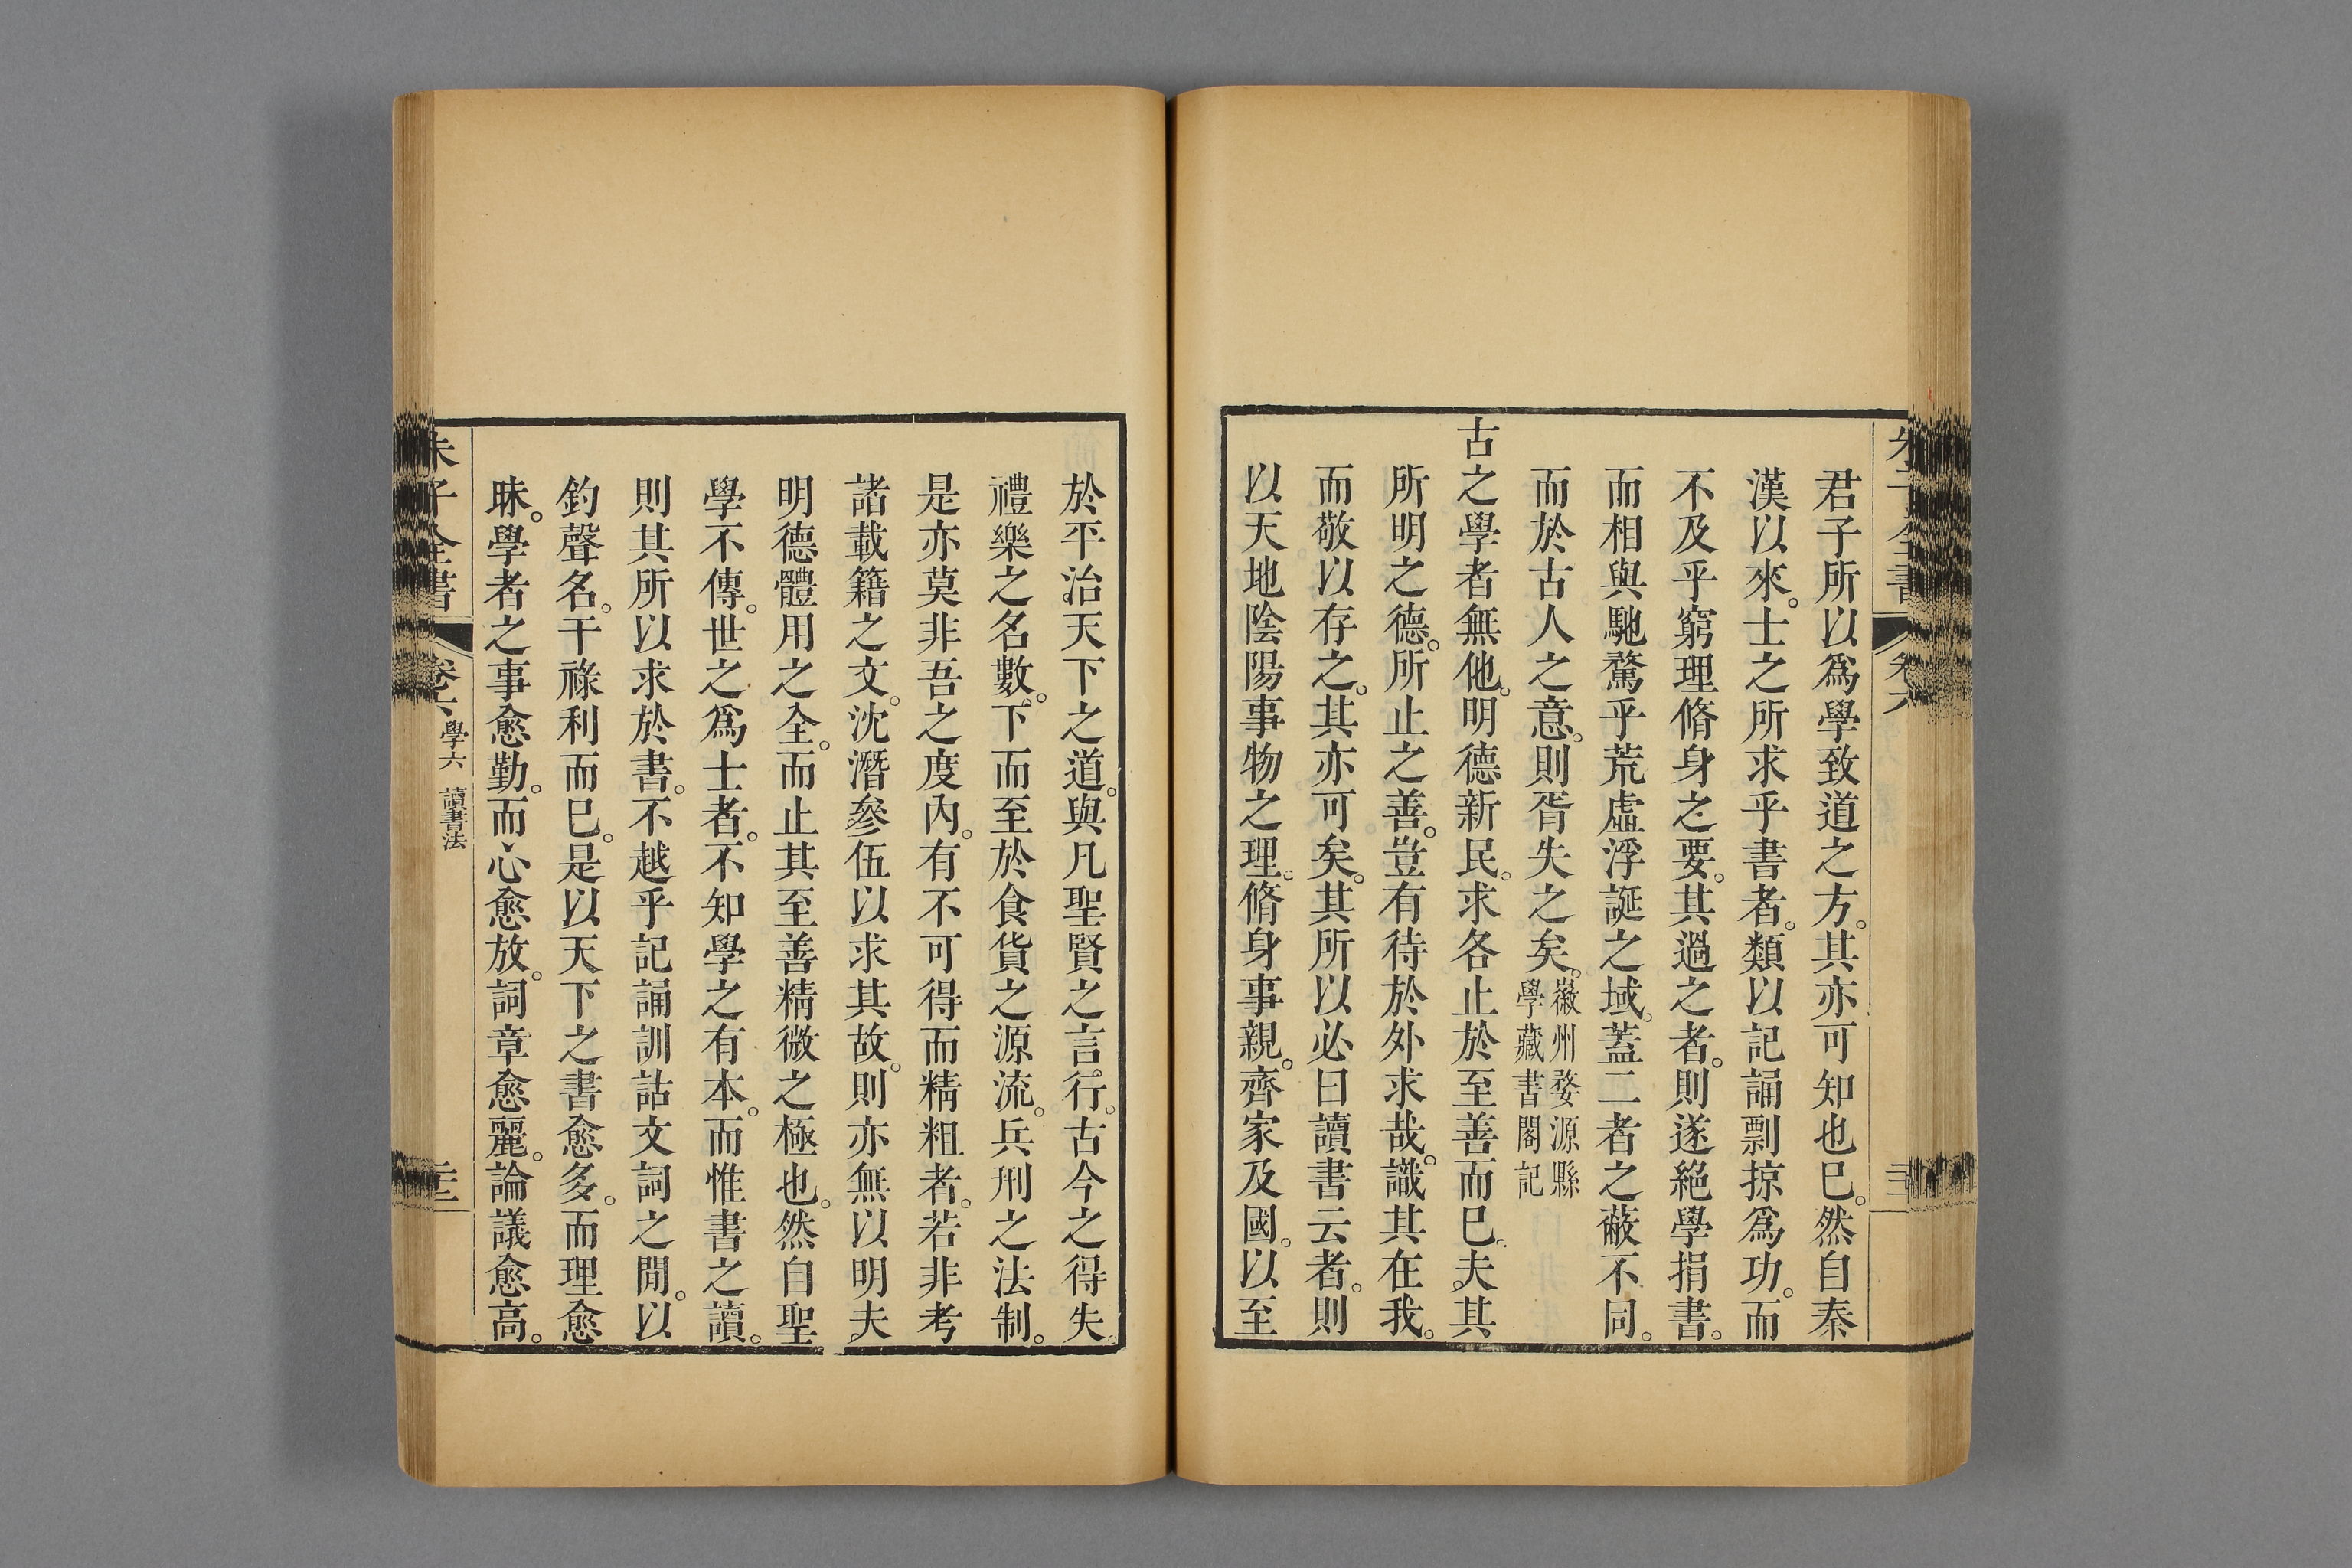 君子所以爲學致道之方。其亦可知也已。然自秦
漢以來。士之所求乎書者。類以記誦剽掠爲功。而
不及乎窮理脩身之要。其過之者。則遂絕學捐書。
而相與馳騖乎荒虛浮誕之域。蓋二者之蔽不同。
而於古人之意。則胥失之矣。徽州婺源縣
學藏書閣記
古之學者無他。明德新民。求各止於至善而已。夫其
所明之德。所止之善。豈有待於外求哉。識其在我。
而敬以存之。其亦可矣。其所以必曰讀書云者。則
以天地陰陽事物之理。脩身事親。齊家及國。以至
於平治天下之道。與凡聖賢之言行。古今之得失。
禮樂之名數。下而至於食貨之源流。兵刑之法制。
是亦莫非吾之度內。有不可得而精粗者。若非考
諸載籍之文。沈潛參伍以求其故。則亦無以明夫
明德體用之全。而止其至善精微之極也。然自聖
學不傳。世之爲士者。不知學之有本。而惟書之讀。
則其所以求於書。不越乎記誦訓詁文詞之閒。以
釣聲名。干祿利而已。是以天下之書愈多。而理愈
昧。學者之事愈勤。而心愈放。詞章愈麗。論議愈高。
朱子全書
卷六
學六 讀書法